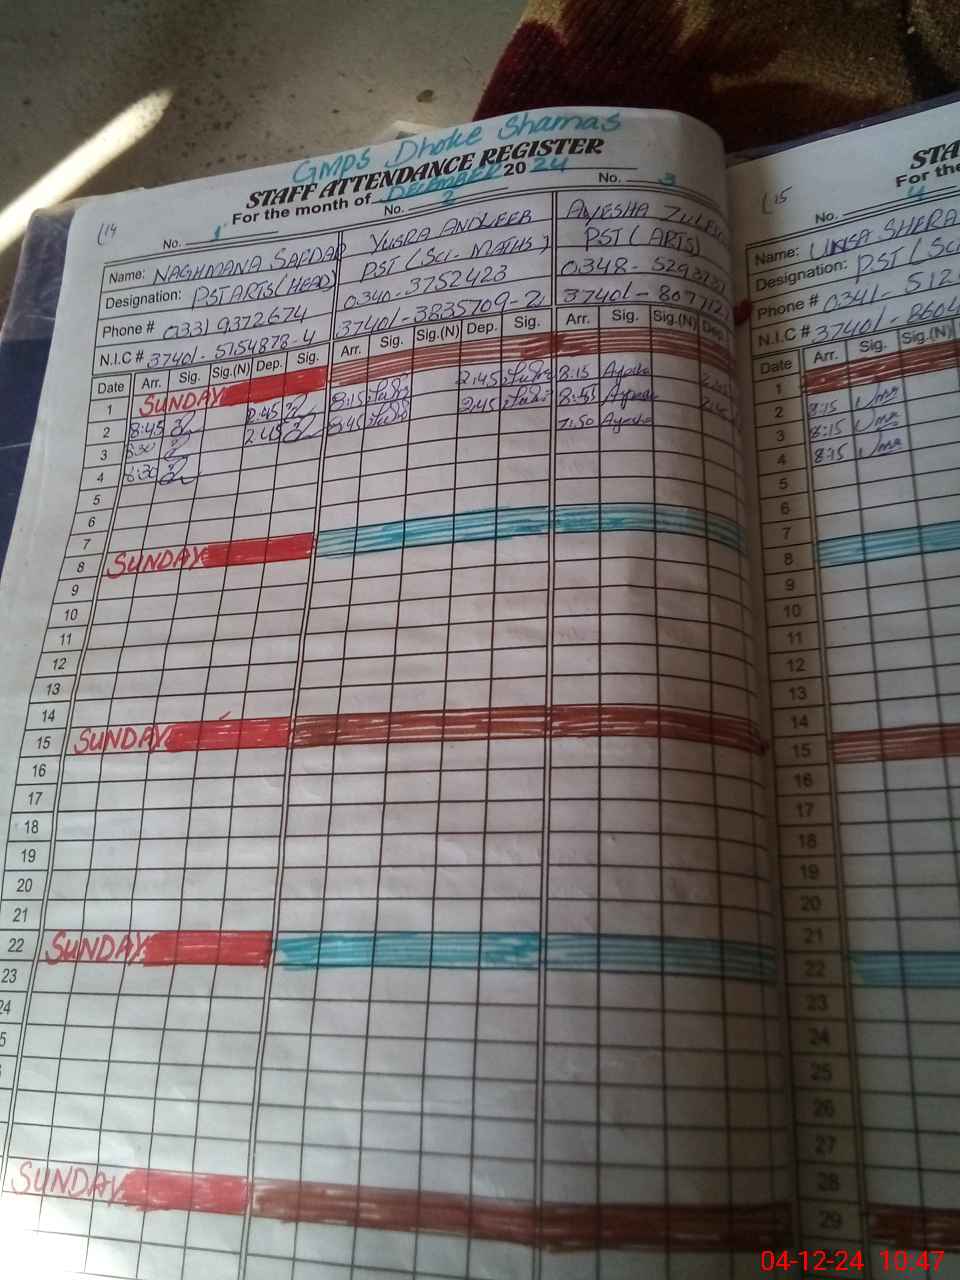 GMPS Dhoke Shamas
STAFF ATTENDANCE REGISTER
For the month of DECEMBER 2024
(14
No. 1
No. 2
No. 3
Name: NAGHMANA SAFDAR YUSRA ANDLEEB AYESHA
Designation: PST ARTS (HEAD) PST (SCI-MATHS) PST (ARTS)
Phone # 03319372674 0340-3752423 0348-
N.I.C # 37401-5154878-4 37401-3835709-2 37401-
Date Arr. Sig. Sig.(N) Dep. Sig. Arr. Sig. Sig.(N) Dep. Sig. Arr. Sig. Sig.(N) Dep.
1 SUNDAY
2 8:45 2:45 8:15 2:45 8:15 Ayesha
3 8:30 2:45 2:45 Ayesha
4 8:30 7:50 Ayesha
5
6
7
8 SUNDAY
9
10
11
12
13
14
15 SUNDAY
16
17
18
19
20
21
22 SUNDAY
23
24
SUNDAY
(15
STA
For the
No. 4
Name:
Designation: PST (Sc
Phone # 0341-512
N.I.C # 37401-8604
Date Arr. Sig. Sig.(N)
1
2 8:15
3 8:15
4 8:15
5
6
7
8
9
10
11
12
13
14
15
16
17
18
19
20
21
22
23
24
25
26
27
28
29
04-12-24 10:47